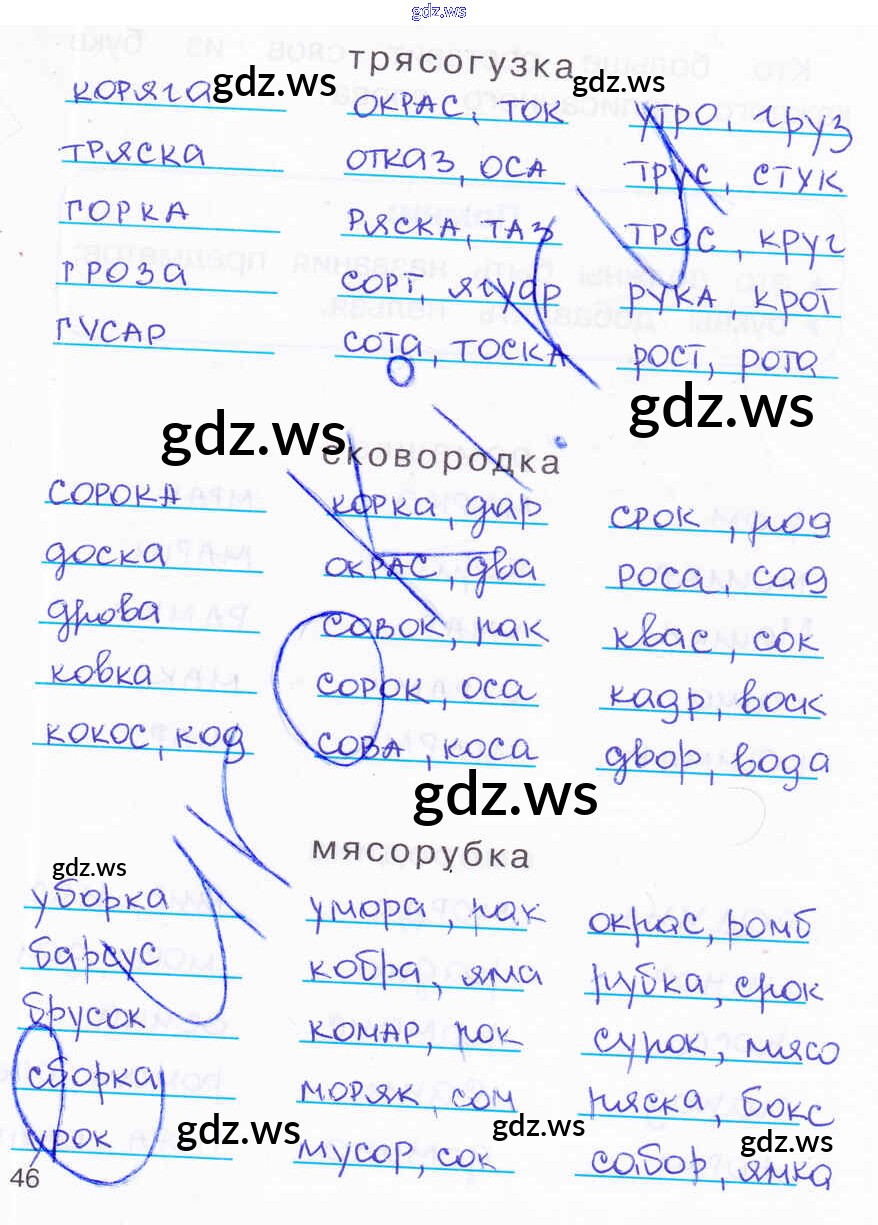 gdz.ws
трясогузка
gdz.ws gdz.ws
коряга окрас, ток утро, груз
тряска отказ, оса трус, стук
горка ряска, таз трос, круг
гроза сорт, ягуар рука, крот
гусар сота, тоска рост, рота
gdz.ws gdz.ws
сковородка
сорока корка, дар срок, род
доска окрас, два роса, сад
дрова совок, рак квас, сок
ковка сорок, оса кадр, воск
кокос, код сова, коса двор, вода
gdz.ws
мясорубка
gdz.ws
уборка умора, рак окрас, ромб
барсус кобра, яма рубка, срок
брусок комар, рок сурок, мясо
сборка моряк, сом ряска, бокс
урок мусор, сок собор, ямка
gdz.ws gdz.ws gdz.ws
46